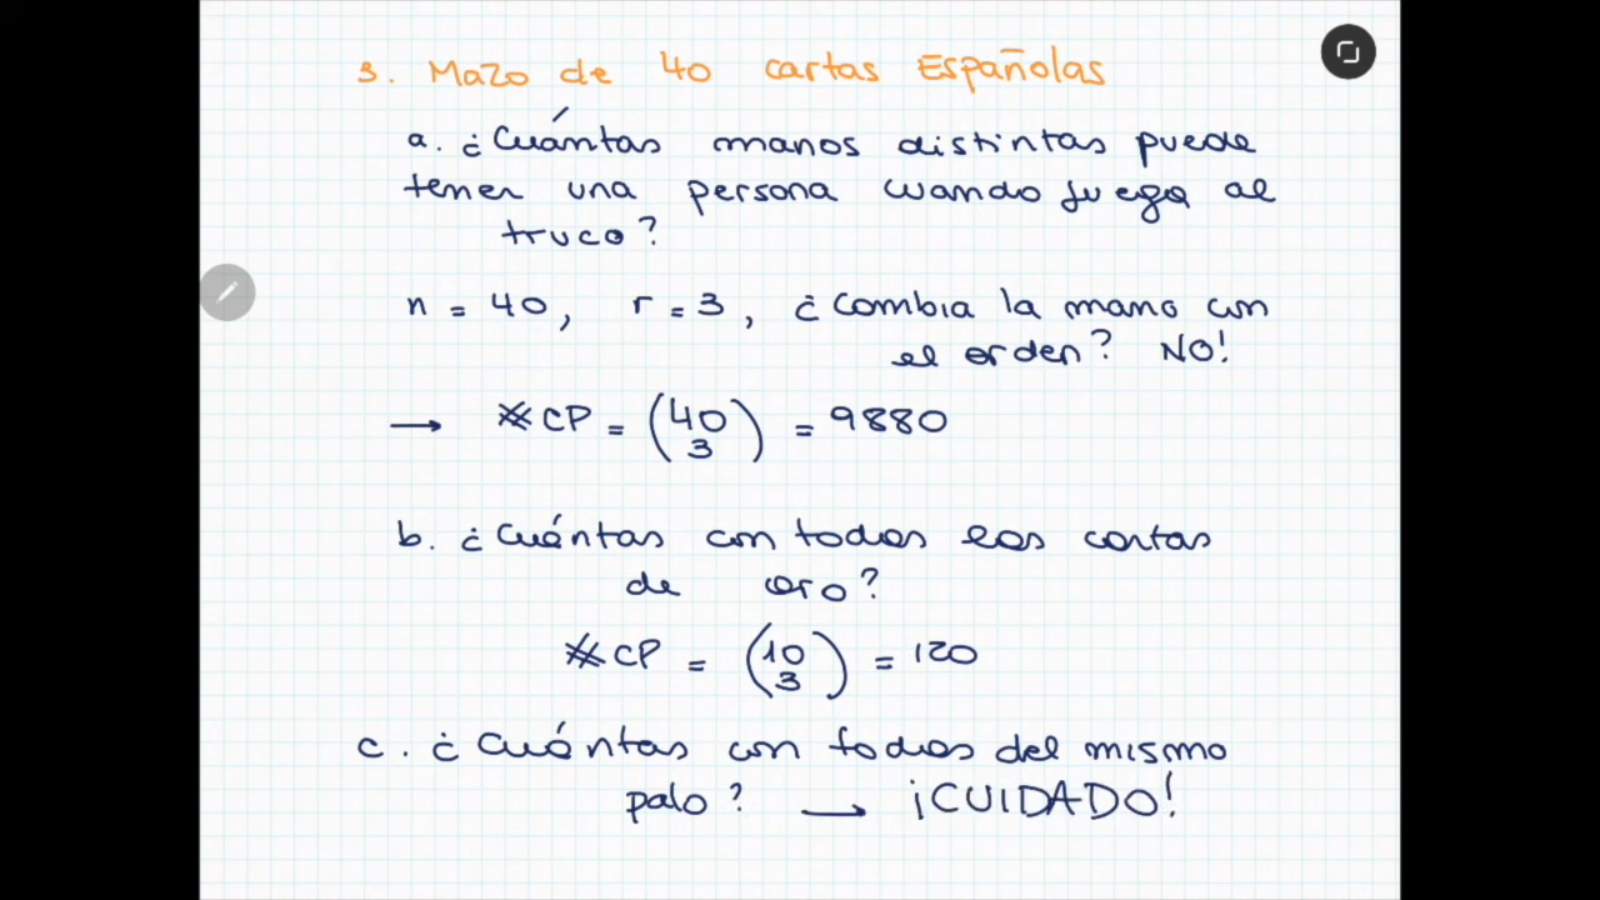 3. Mazo de 40 cartas Españolas
a. ¿Cuántas manos distintas puede
tener una persona cuando juega al
truco?
n = 40, r = 3, ¿Cambia la mano con
el orden? NO!
→ #CP = (40 3) = 9880
b. ¿Cuántas con todas las cartas
de oro?
#CP = (10 3) = 120
c. ¿Cuántas con todas del mismo
palo? → ¡CUIDADO!